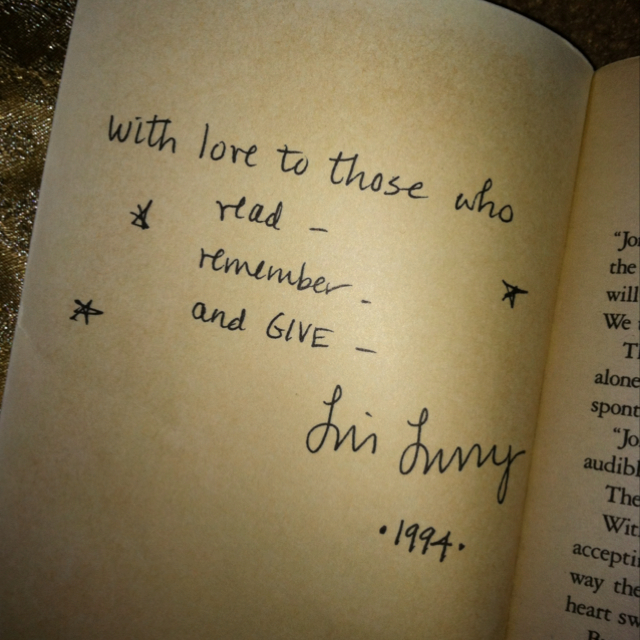 with love to those who
read –
remember –
and GIVE –
Lois Lowry
• 1994 •
“Jo
the
will
We
alone
spont
“Jo
audibl
The
Wit
accepti
way the
heart sw